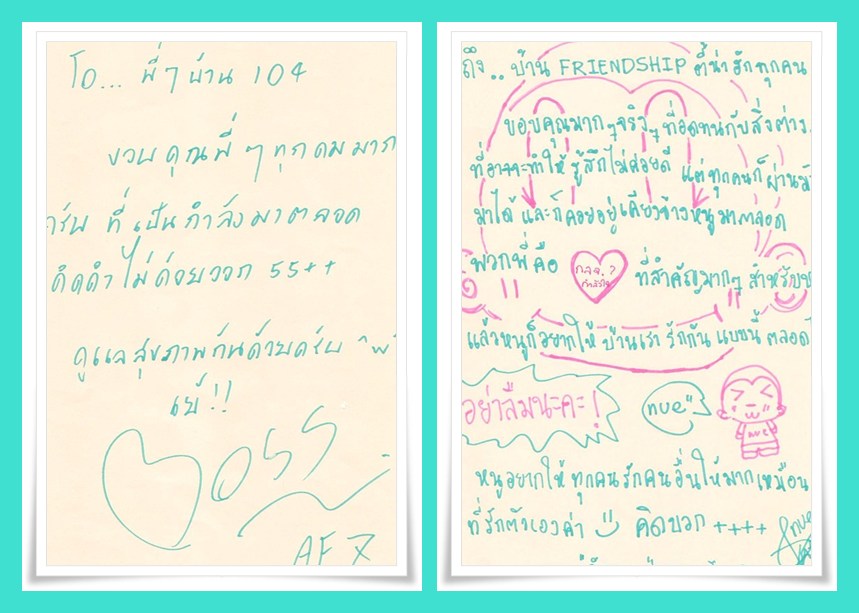 TO... พี่ๆ บ้าน 104
ขอบคุณพี่ๆ ทุกคนมาก
ครับ ที่เป็นกำลังมาตลอด
คิดคำไม่ค่อยออก 55++
ดูแลสุขภาพกันด้วยครับ ^w^
เย้!!
BOSS
AF7
ถึง.. บ้าน FRIENDSHIP ที่น่ารักทุกคน
ขอบคุณมากๆ จริงๆ ที่อดทนกับสิ่งต่าง
ที่อาจจะทำให้รู้สึกไม่ค่อยดี แต่ทุกคนก็ผ่าน
มาได้ และก็คอยอยู่เคียงข้างหนูมาตลอด
พวกพี่คือ กลจ.? กำลังใจ ที่สำคัญมากๆ สำหรับ
แล้วหนูก็อยากให้บ้านเรารักกันแบบนี้ตลอด
อย่าลืมนะคะ! nue"
nue
หนูอยากให้ทุกคนรักคนอื่นให้มากเหมือน
ที่รักตัวเองค่า คิดบวก ++++ nue